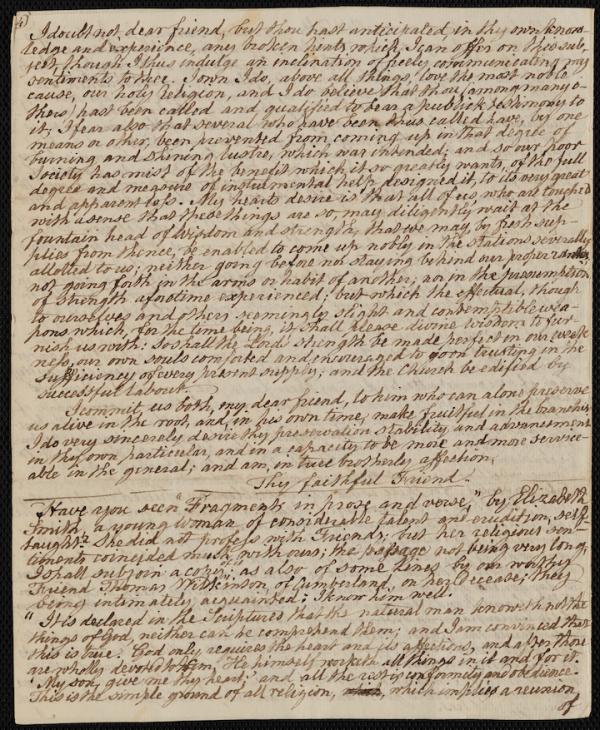 4)
I doubt not, dear friend, but thou hast anticipated, in thy own know-
ledge and experience, any broken hints which I can offer on this sub-
ject, though I thus indulge an inclination of freely communicating my
sentiments to thee. I own I do, above all things, love the most noble
cause, our holy religion, and I do believe that thou, among many o-
thers, hast been called and qualified to bear a publick testimony to
it; I fear also that several who have been thus called have, by one
means or other, been prevented from coming up in that degree of
burning and shining lustre, which was intended; and so our poor
Society has mist of the benefit which it so greatly wants, of the full
degree and measure of instrumental help designed it, to its very great
and apparent loss. My heart's desire is that all of us, who are touched
with a sense that these things are so, may diligently wait at the
fountain head of wisdom and strength, that we may, by fresh sup-
plies from thence, be enabled to come up nobly in the stations severally
allotted to us; neither going before nor staying behind our proper ranks,
not going forth in the arms or habit of another; nor in the presumption
of strength aforetime experienced; but which the effectual, though
to ourselves and others seemingly slight and contemptible wea-
pons which, for the time being, it shall please divine wisdom to fur-
nish us with: so shall the Lord's strength be made perfect in our weak-
ness, our own souls comforted and encouraged to go on trusting in the
sufficiency of every present supply; and the Church be edified by
successful labour.
I commit us both, my dear friend, to him who can alone preserve
us alive in the root, and, in his own time, make fruitful in the branches.
I do very sincerely desire thy preservation, stability, and advancement
in thy own particular, and in a capacity to be more and more service-
able in the general; and am, in true brotherly affection,
Thy faithful Friend.
Have you seen "Fragments in prose and verse," by Elizabeth
Smith, a young woman of considerable talent and erudition, self-
taught? She did not profess with Friends; but her religious sen-
timents coincided much with ours; the passage not being very long,
I shall subjoin a copy; as also of some lines by our worthy
Friend Thomas Wilkinson of Cumberland, on her decease; they
being intimately acquainted: I know him well.
"It is declared in the Scriptures that the natural man knoweth not the
things of God, neither can he comprehend them; and I am convinced that
this is true. God only requires the heart and its affections, and after those
are wholly devoted to him, He himself worketh all things in it and for it.
"My son, give me thy heart;" and all the rest is conformity and obedience.
This is the simple ground of all religion, which implies a reunion
of